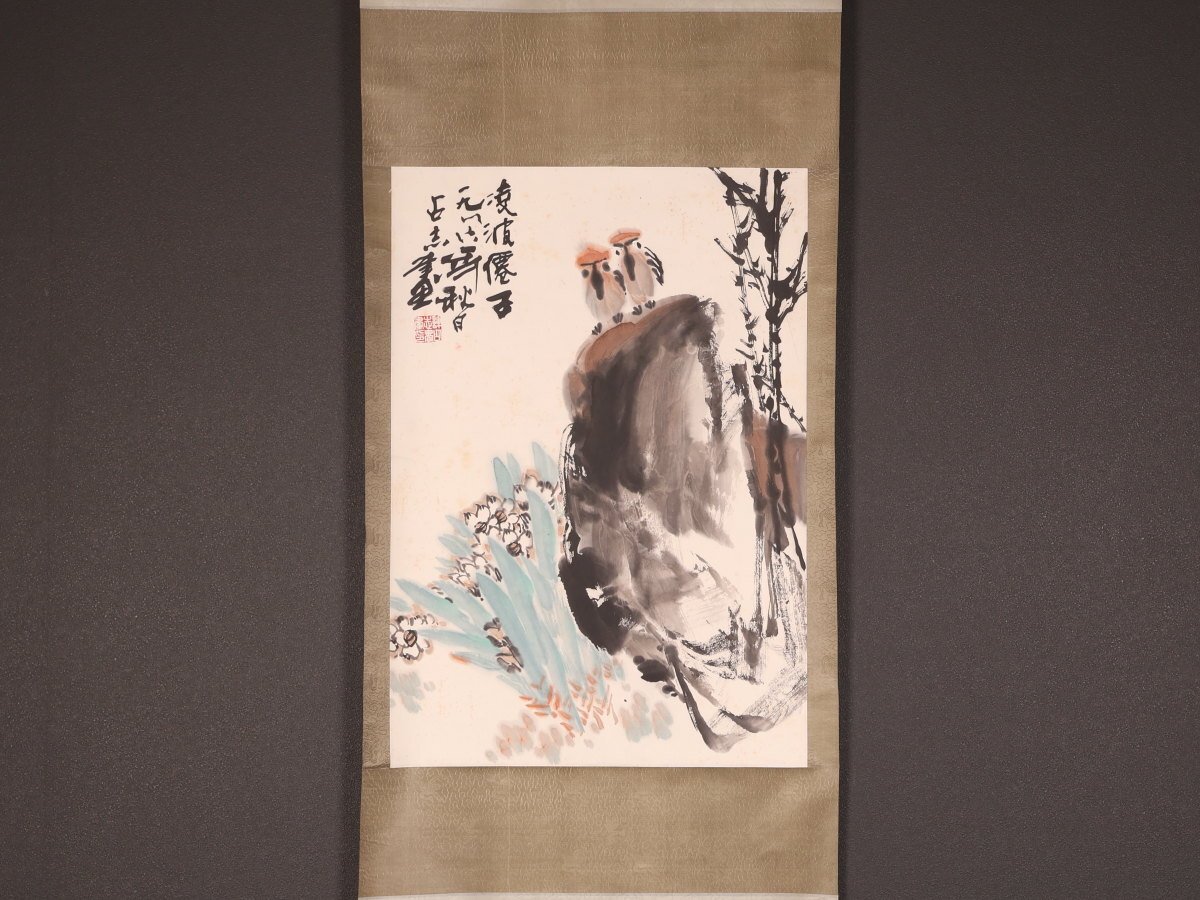 凌波僊子
一九八六年秋日
占志畫